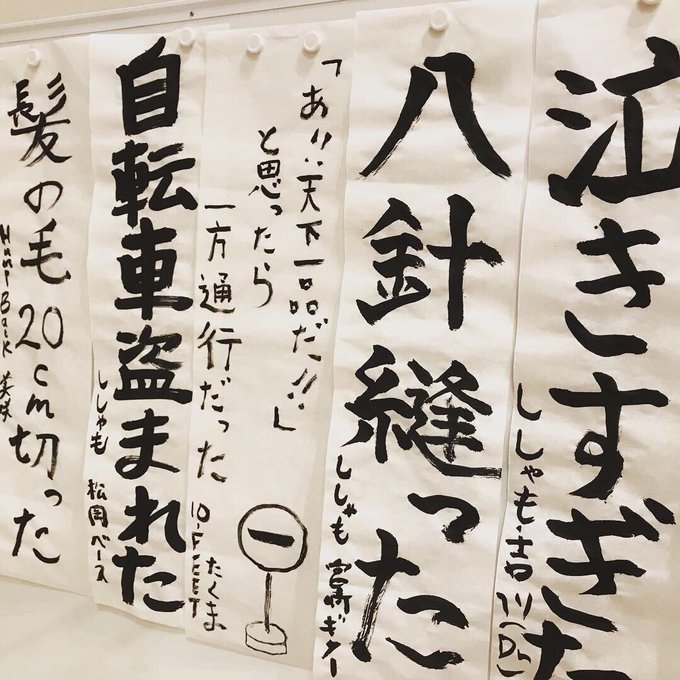 泣きすぎた
ししゃも・吉川(Dr)
八針縫った
ししゃも 宮崎ギター
「あ!!天下一品だっ!!」
と思ったら
一方通行だった
10-FEET
たくま
自転車盗まれた
ししゃも 松岡ベース
髪の毛20cm切った
Hump Back 美咲